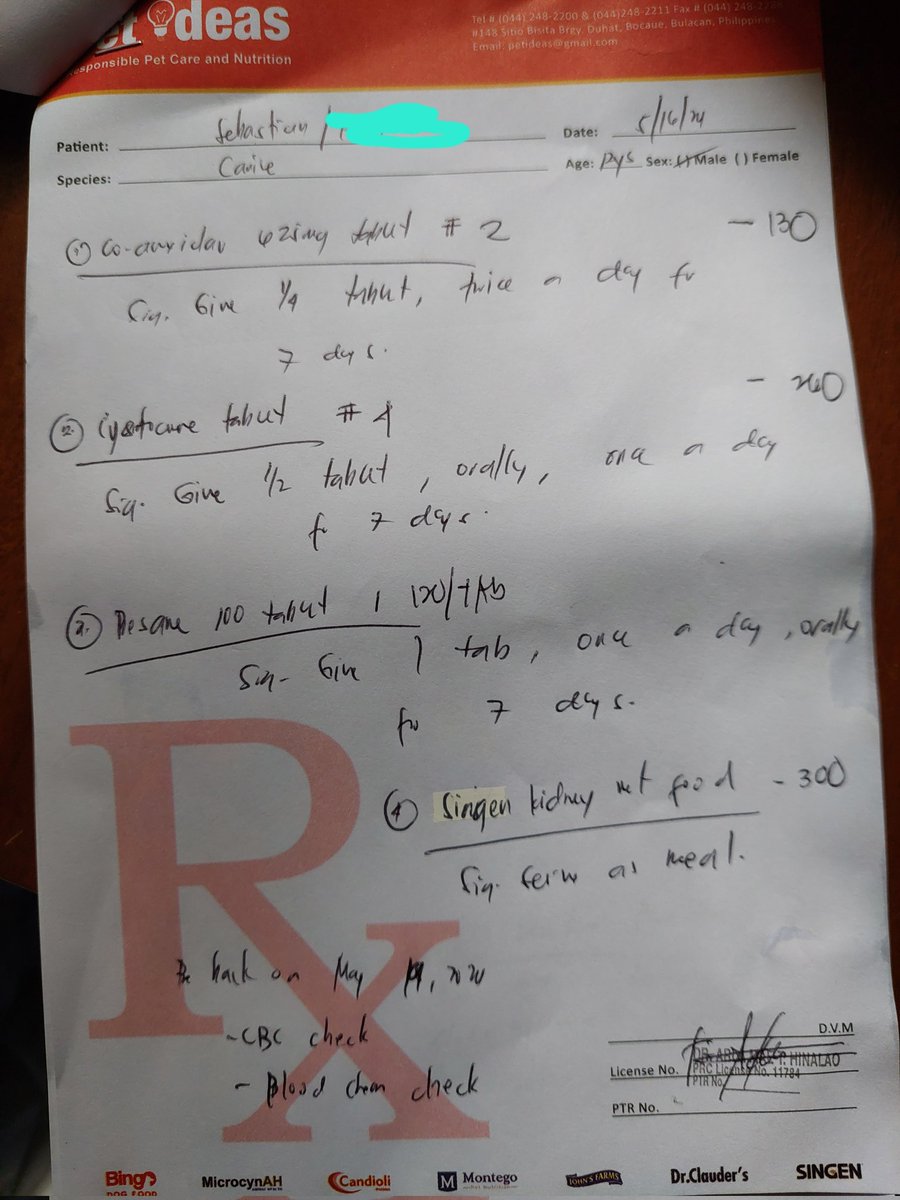 et Ideas
esponsible Pet Care and Nutrition
Tel # (044) 248-2200 & (044)248-2211 Fax # (044) 248-
#148 Sitio Bisita Brgy. Duhat, Bocaue, Bulacan, Philippines
Email: petideas@gmail.com
Patient: Sebastian /
Date: 5/16/
Species: Canine
Age: Sex: ( ) Male ( ) Female
1) 625mg tablet # 2 - 130
Sig. Give 1/4 tablet, twice a day for
7 days.
2. Cystocure tablet # 4 - 260
Sig. Give 1/2 tablet, orally, once a day
for 7 days.
3. 100 tablet 120/tAb
Sig- Give 1 tab, once a day, orally
for 7 days.
4 Singen kidney vet food - 300
Sig. serve as meal.
Be back on May
-CBC check
- Blood chem check
D.V.M
License No.
HINALAO
PRC License No. 11784
PTR No.
PTR No.
RX
Bingo
DOG FOOD
MicrocynAH
Candioli
Montego
JOHN'S FARMS
Dr.Clauder's
SINGEN